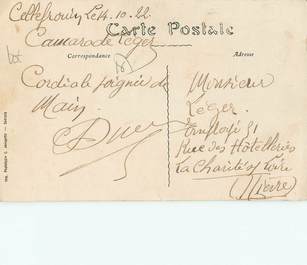 Cellefrouin, Le 14.10.22
Carte Postale
Camarade Léger
Correspondance
Adresse
Cordiale poignée de
Main
Monsieur
Léger
Employé
Rue des Hôtelleries
La Charité s/ Loire
(Nièvre)